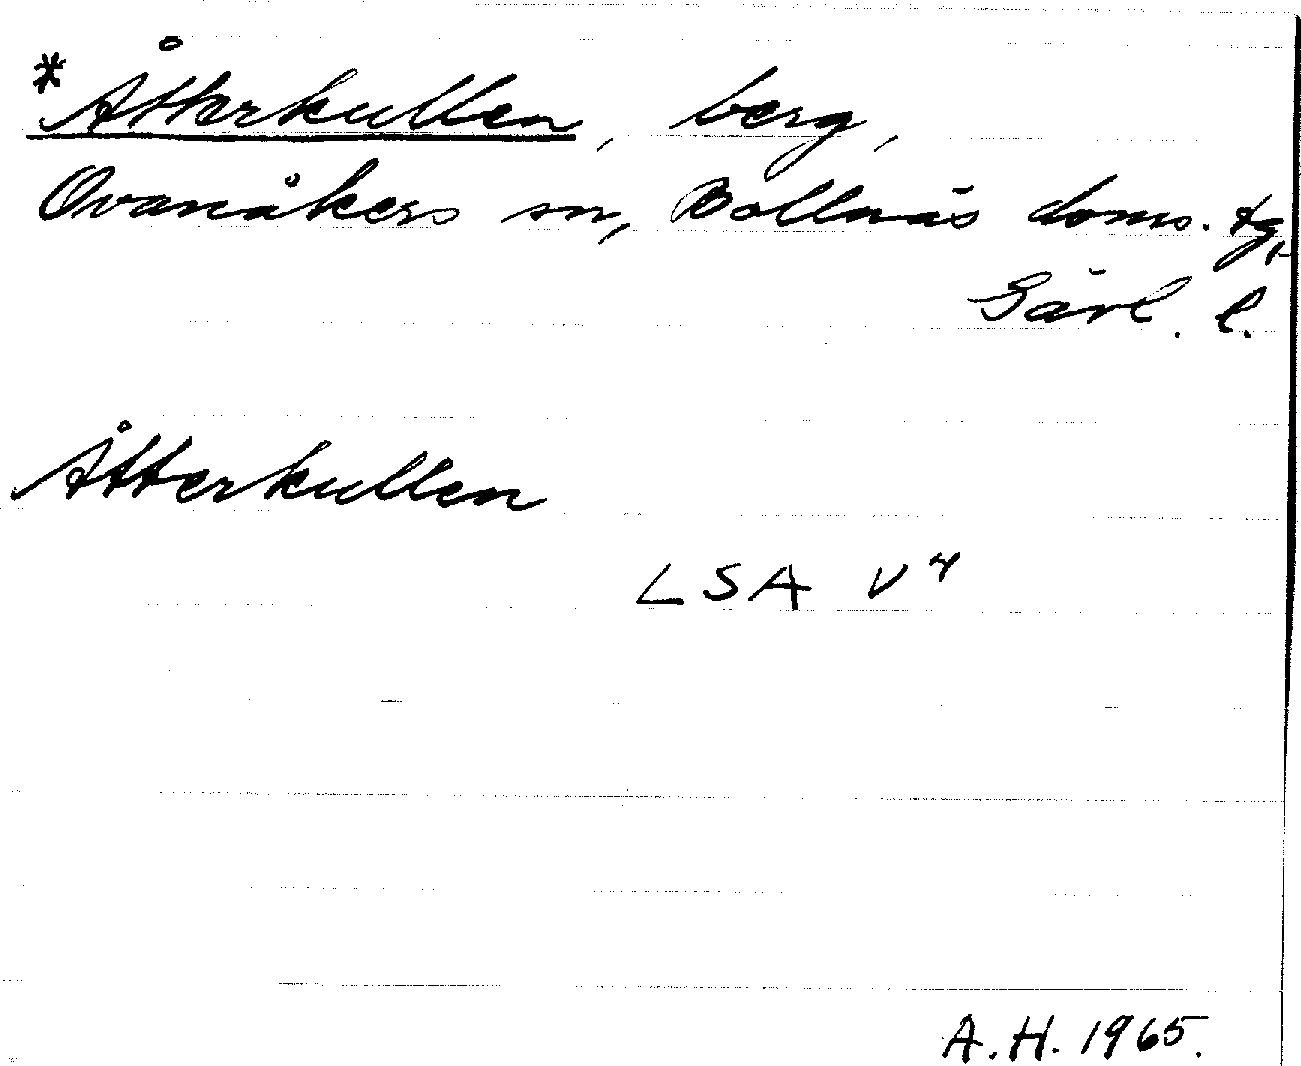 *Åtterkullen, berg,
Ovanåkers sn, Bollnäs doms. tg,
Gävl. l.
Åtterkullen
LSA V4
A.H. 1965.